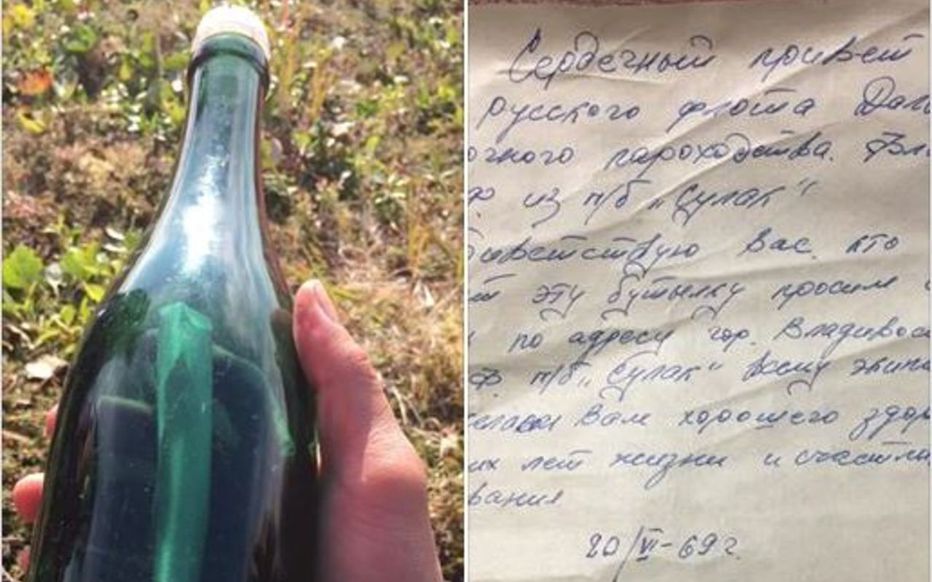 Сердечный привет
русского флота Дал
очного пароходства. Вла
из п/б „Сулак“
ветствую Вас, кто
т эту бутылку просим
по адресу гор. Владивос
п/б „Сулак“ всему экипа
Вам хорошего здор
их лет жизни и счастли
вания
20/VI-69 г.